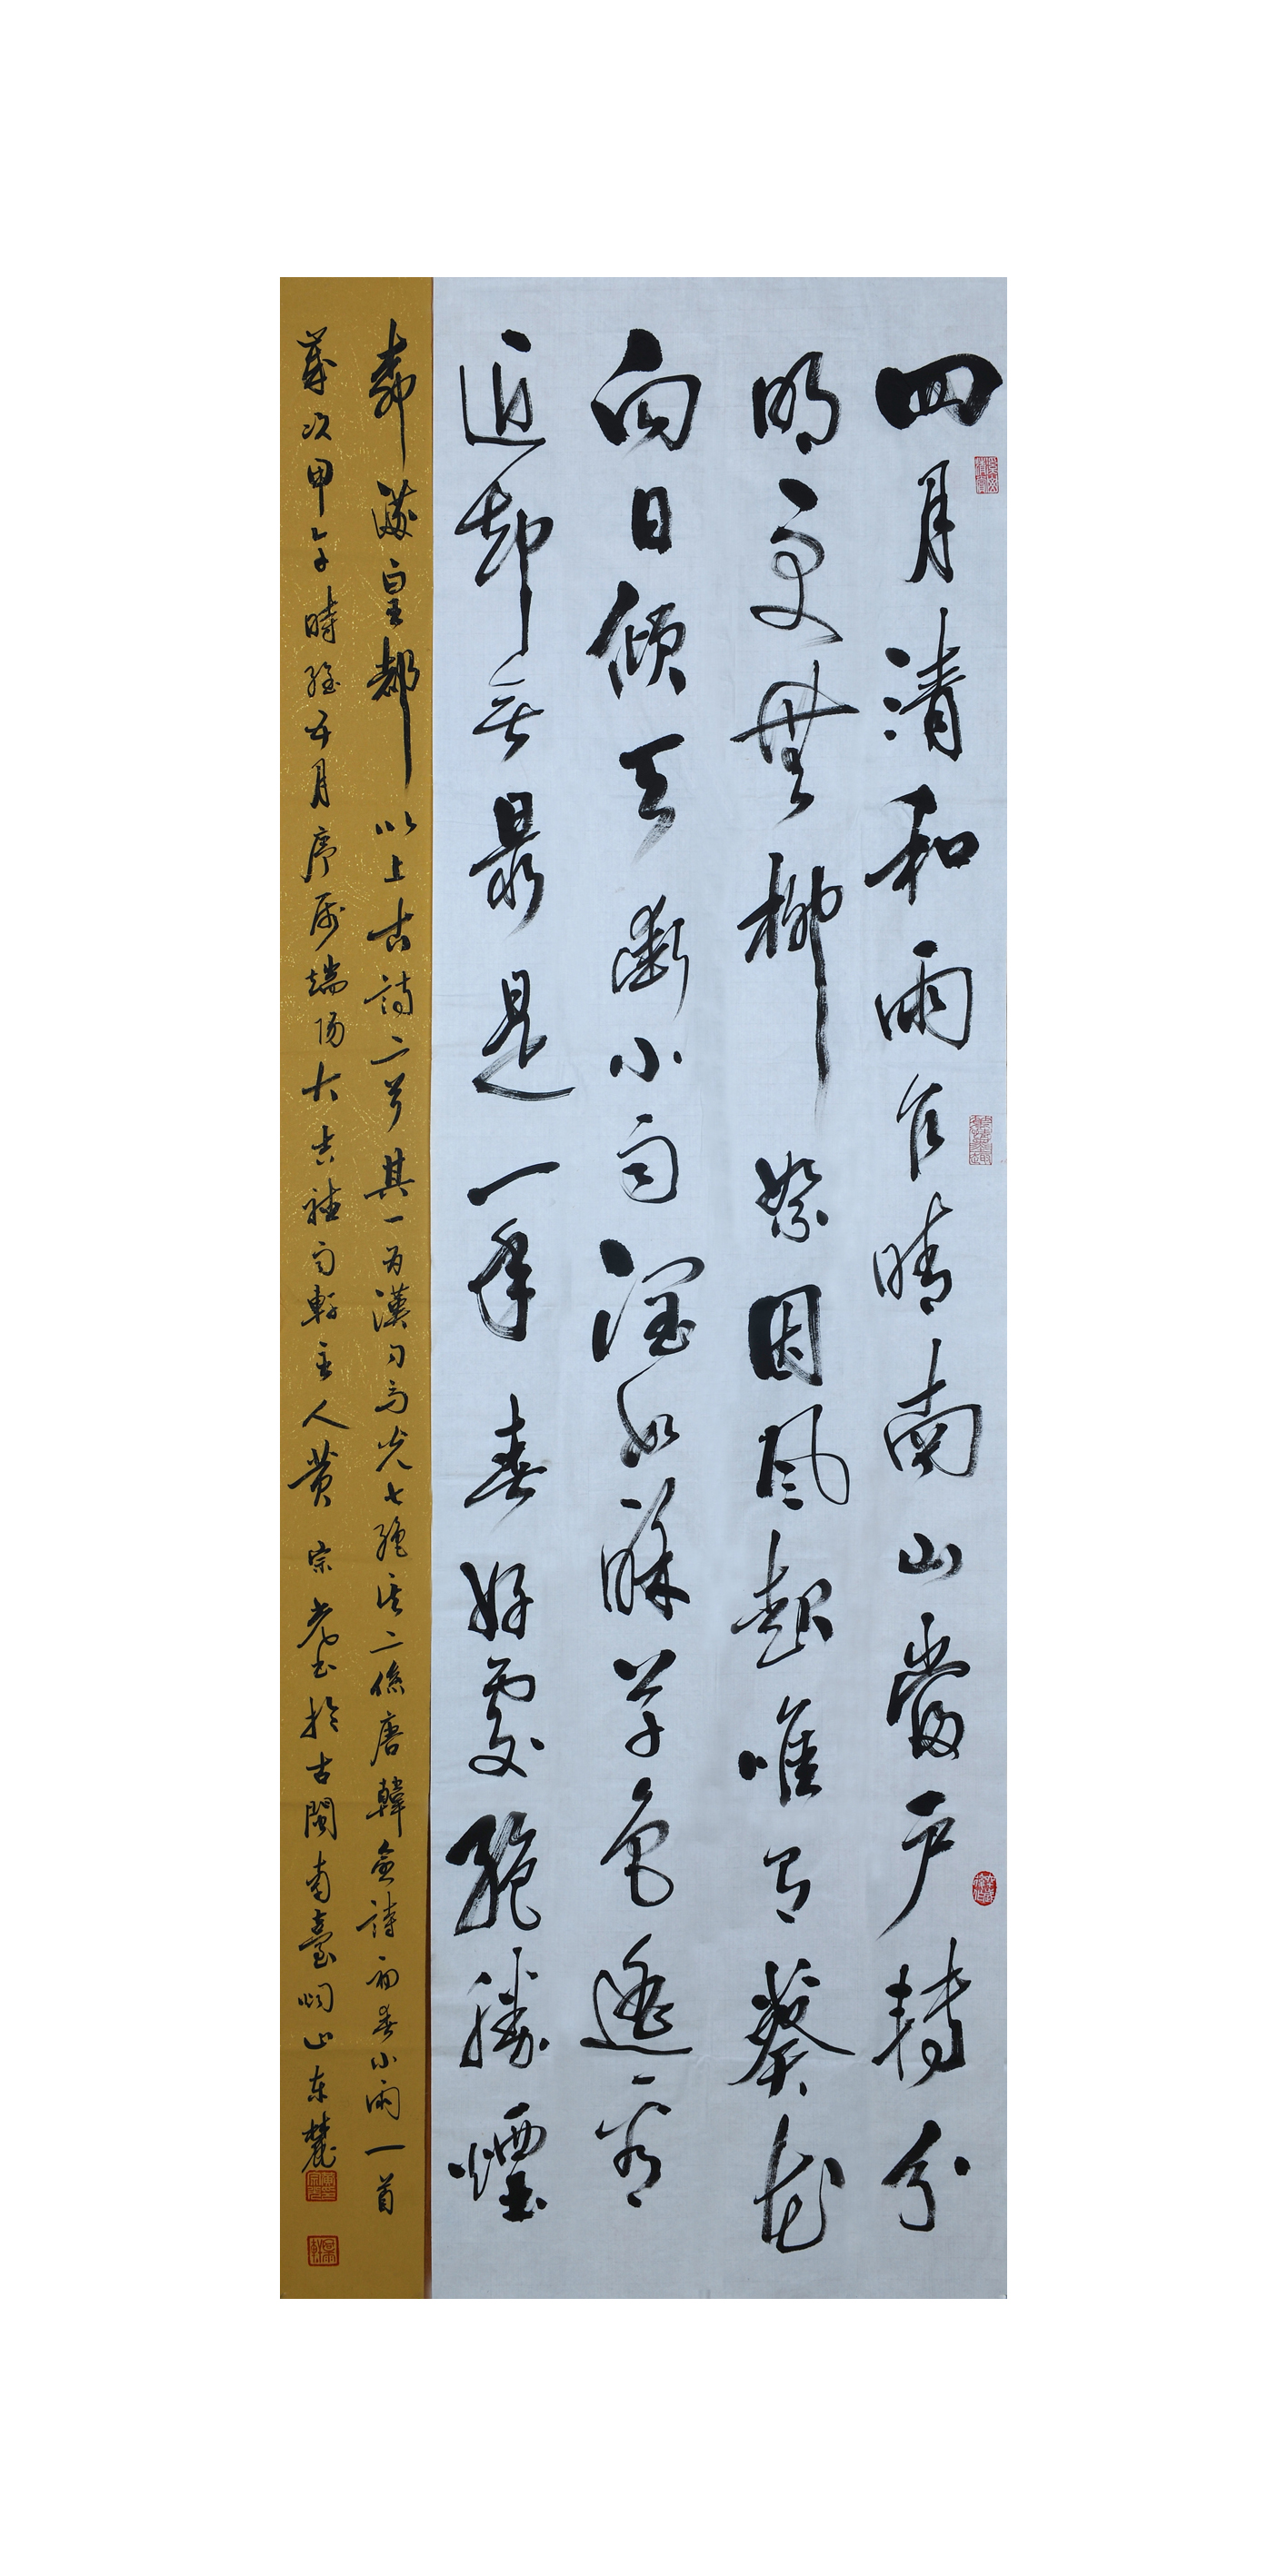 四月清和雨乍晴南山當戶轉分
明更無柳絮因風起唯有葵花
向日傾天街小雨潤如酥草色遙看
近卻無最是一年春好處絕勝煙
柳滿皇都以上古詩二首其一為漢司馬光七絕其二係唐韓愈詩初春小雨一首
歲次甲午時維五月序屬端陽大吉聽雨軒主人黃宗堯書於古閩南臺山東麓